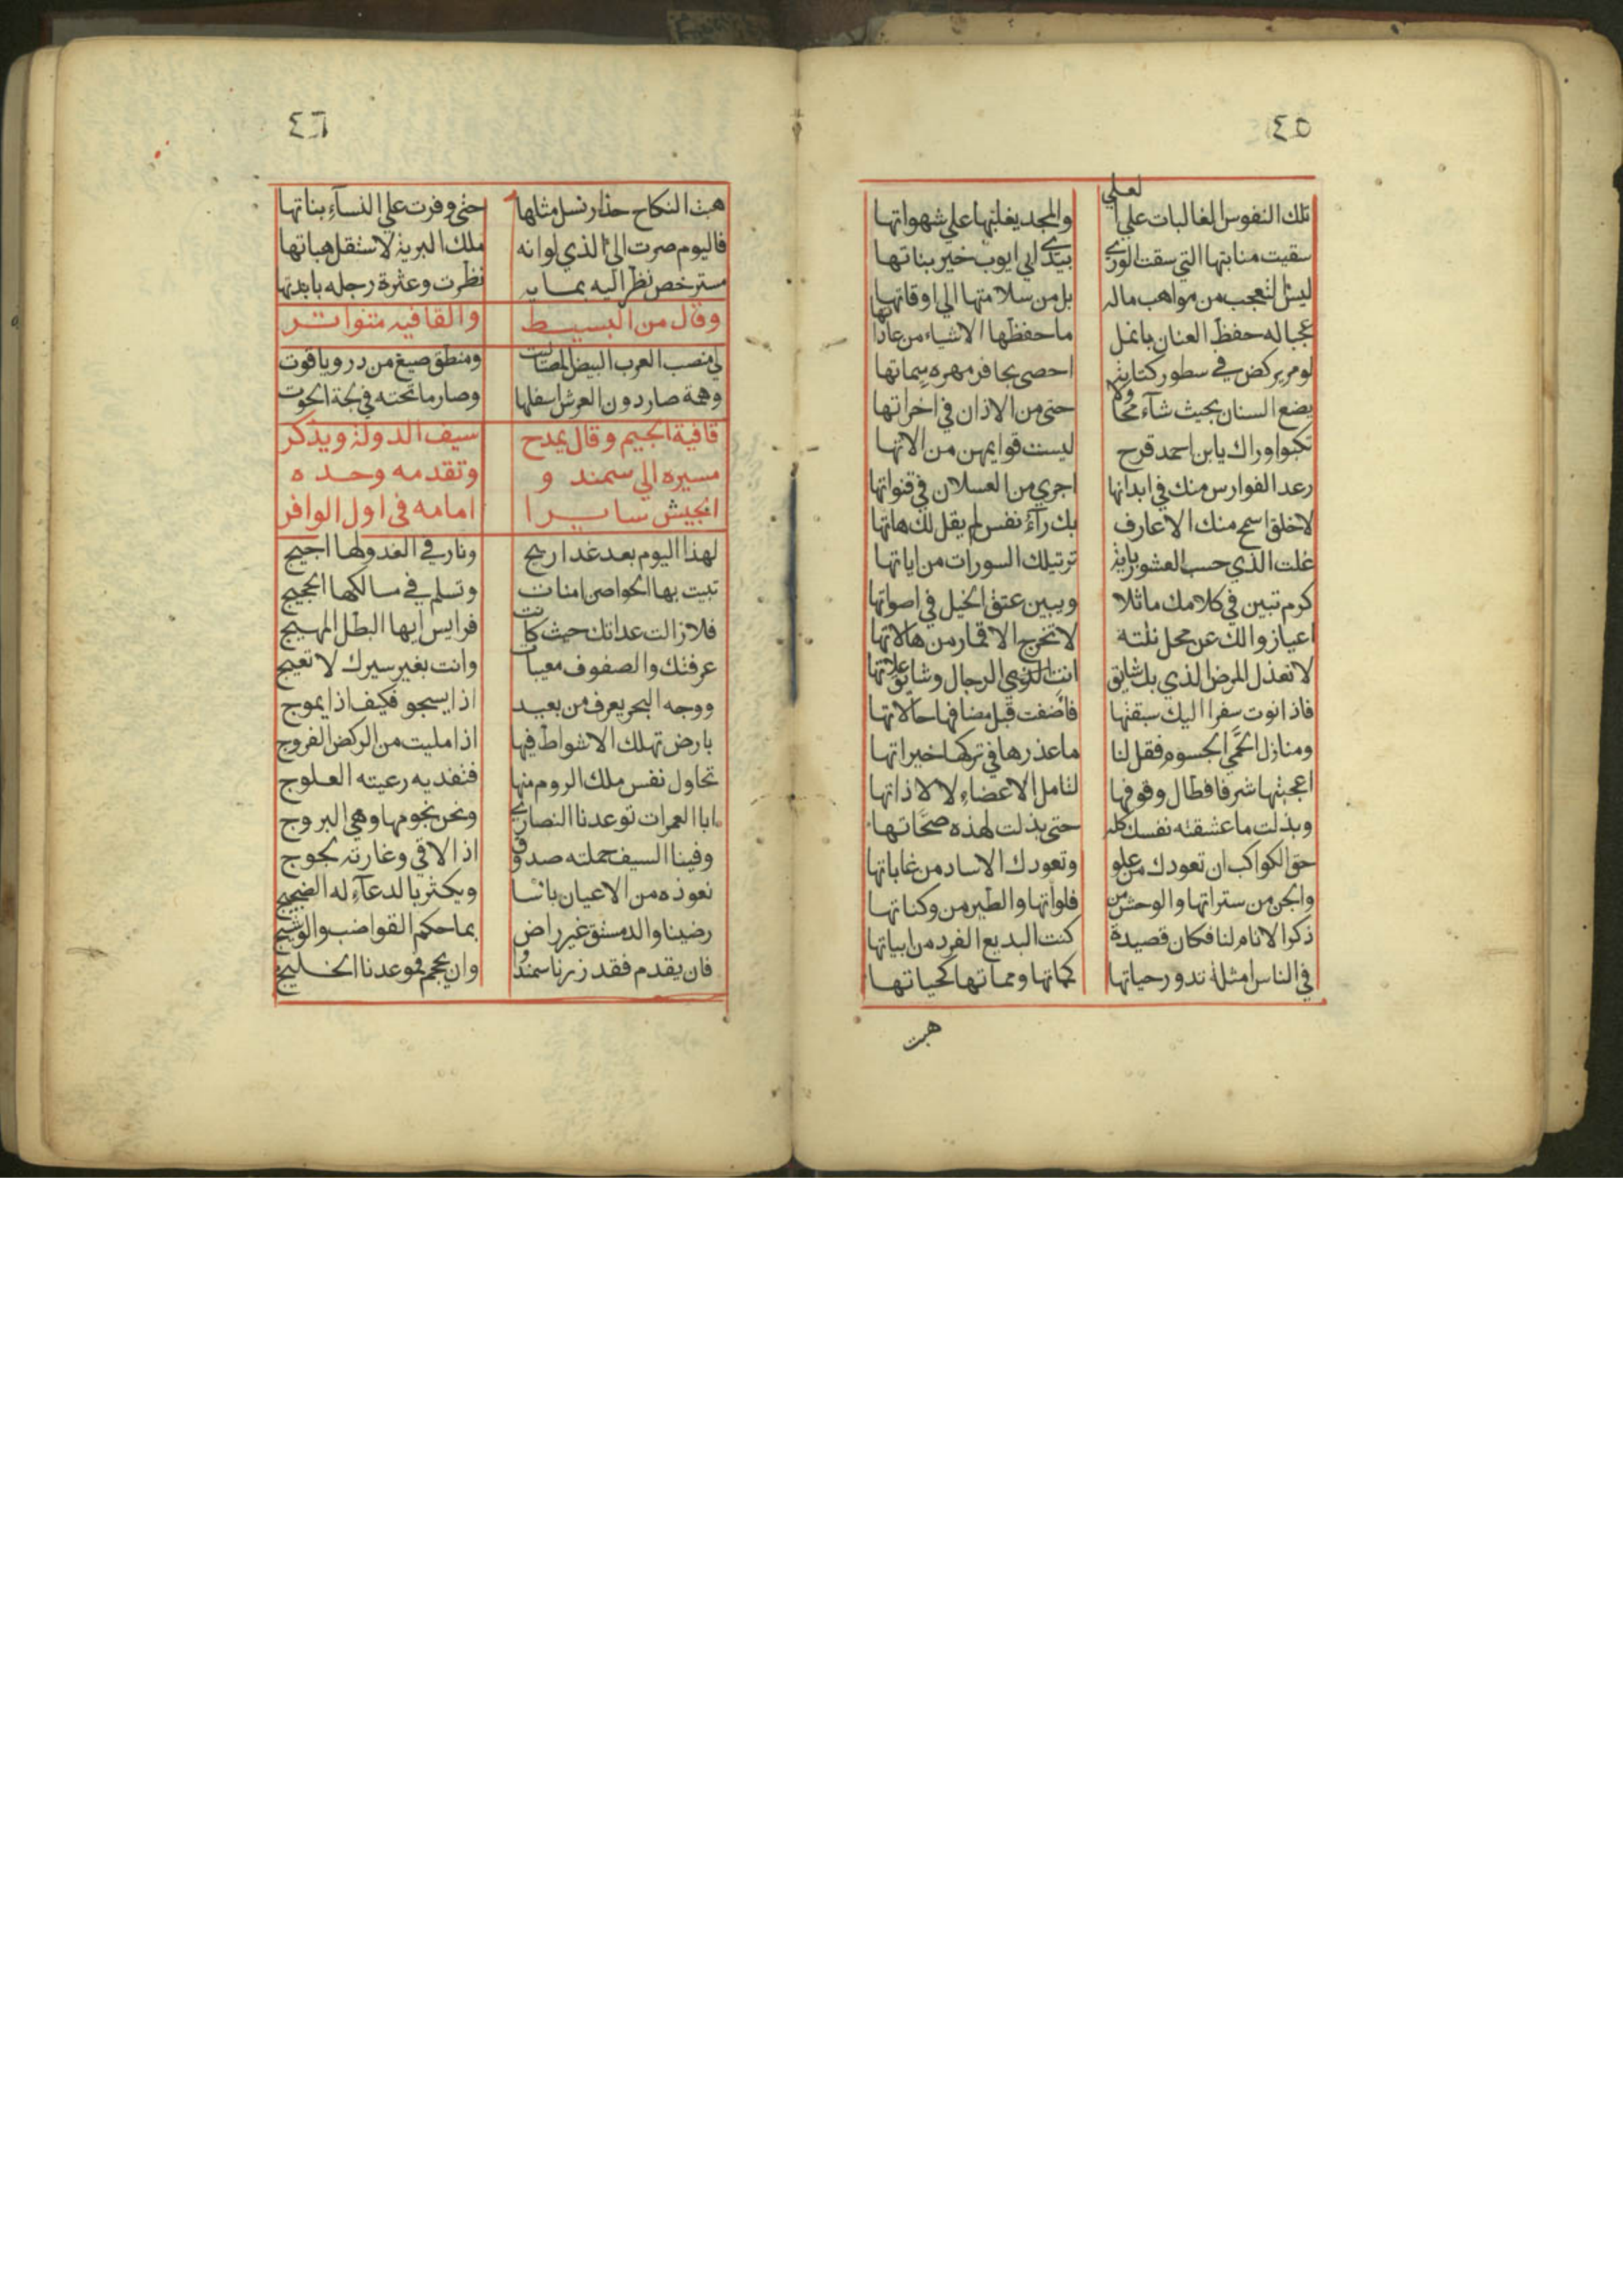 ٤٥
تلك النفوس الغالبات علي العلي والمجد يغلبها علي شهواتها
سقيت منابتها التي سقت الوري بيدي ابي ايوب خير بناتها
ليس التعجب من مواهب ماله بل من سلامتها الي اوقاتها
عجبا له حفظ العنان بانمل ما حفظها الاشياء من عاداتها
لو مر يركض في سطور كتابة احصي بحافر مهره ميماتها
يضع السنان بحيث شآء محاولا حتى من الاذان في اخراتها
تكبوا وراك يابن احمد قرح ليست قوايمهن من الاتها
رعد الفوارس منك في ابدانها اجري من العسلان في قنواتها
لا خلق اسمح منك الا عارف بك رآء نفس لم يقل لك هاتها
غلت الذي حسب العشور باية ترتيلك السورات من اياتها
كرم تبين في كلامك ماثلا ويبين عتق الخيل في اصواتها
اعيا زوالك عن محل نلته لا تخرج الاقمار من هالاتها
لا تعذل المرض الذي بك شايق انت الرجال وشايق علاتها
فاذا نوت سفرا اليك سبقنها فاضفت قبل مضافها حالاتها
ومنازل الحمي الجسوم فقل لنا ما عذرها في تركها خيراتها
اعجبتها شرفا فطال وقوفها لتامل الاعضاء لا لاذاتها
وبذلت ما عشقته نفسك كله حتى بذلت لهذه صحاتها
حق الكواكب ان تعودك من علو وتعودك الاساد من غاباتها
والجن من ستراتها والوحش من فلواتها والطير من وكناتها
ذكر الانام لنا فكان قصيدة كنت البديع الفرد من ابياتها
في الناس امثلة تدور حياتها كمماتها ومماتها كحياتها
هبت
٤٦
هبت النكاح حذار نسل مثلها حتى وفرت علي النسآء بناتها
فاليوم صرت الي الذي لو انه ملك البرية لاستقل هباتها
مسترخص نظر اليه بما به نظرت وعثرة رجله بدياتها
وقال من البسيط والقافيه متواتر
لي منصب العرب البيض المصاليت ومنطق صيغ من در وياقوت
وهمة صار دون العرش اسفلها وصار ما تحته في لجة الحوت
قافية الجيم وقال يمدح سيف الدولة ويذكر
مسيره الي سمندو وتقدمه وحده
الجيش سايرا امامه في اول الوافر
لهذا اليوم بعد غد اريج ونار في العدو لها اجيج
تبيت بها الحواصن امنات وتسلم في مسالكها الحجيج
فلا زالت عداتك حيث كانت فرايس ايها البطل المهيج
عرفتك والصفوف معبيات وانت بغير سيرك لا تعيج
ووجه البحر يعرف من بعيد اذا يسجو فكيف اذا يموج
بارض تهلك الاشواط فيها اذا مليت من الركض الفروج
تحاول نفس ملك الروم منها فتفديه رعيته العلوج
ابا الغمرات توعدنا النصاري ونحن نجومها وهي البروج
وفينا السيف حملته صدوق اذا لاقي وغارته لجوج
نعوذه من الاعيان باسا ويكثر بالدعآء له الضجيج
رضينا والدمستق غير راض بما حكم القواضب والوشيج
فان يقدم فقد زرنا سمندو وان يحجم فموعدنا الخليج